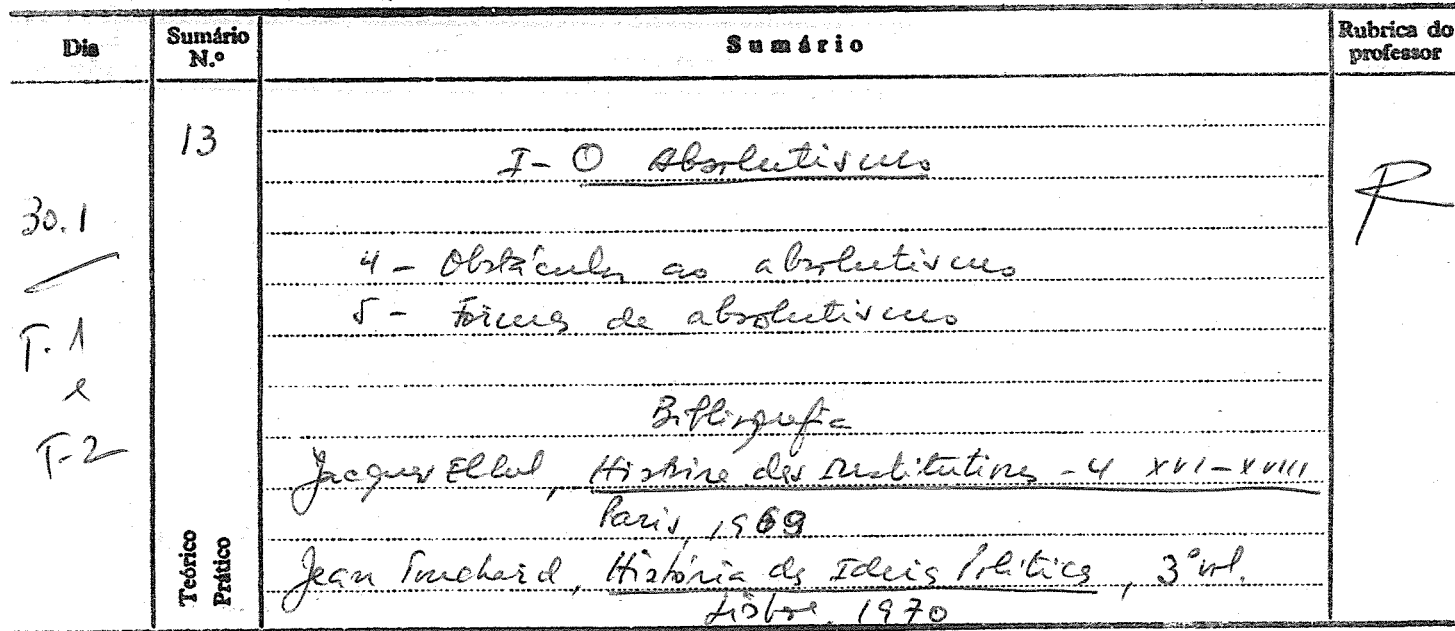 Dia
Sumário N.º
Sumário
Rubrica do professor
13
I - O Absolutismo
30.1
T. 1
e
T-2
4 - Obstáculos ao absolutismo
5 - Formas de absolutismo
Bibliografia
Jacques Ellul, Histoire des Institutions - 4 XVI-XVIII
Paris, 1969
Jean Touchard, História das Ideias Políticas, 3º vol.
Lisboa, 1970
Teórico
Prático
R